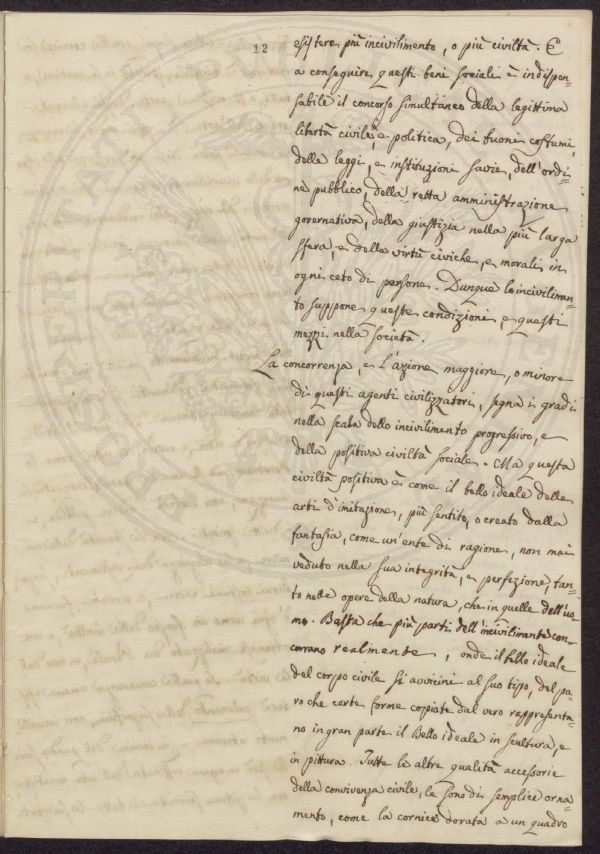 12
esistere più incivilimento, o più civiltà. E
a conseguire questi beni sociali è indispen-
sabile il concorso simultaneo della legittima
libertà civile, e politica, dei buoni costumi,
delle leggi, e instituzioni savie, dell'ordi-
ne pubblico, della retta amministrazione
governativa, della giustizia nella più larga
sfera, e delle virtù civiche, e morali in
ogni ceto di persone. Dunque lo incivilimen-
to suppone queste condizioni, e questi
mezzi nella società.
La concorrenza, e l'azione maggiore, o minore
di questi agenti civilizzatori, segna i gradi
nella scala dello incivilimento progressivo, e
della positiva civiltà sociale. Ma questa
civiltà positiva è come il bello ideale delle
arti d'imitazione, più sentito, o creato dalla
fantasia, come un'ente di ragione, non mai
veduto nella sua integrità, e perfezione, tan-
to nelle opere della natura, che in quelle dell'uo-
mo. Basta che più parti dell'incivilimento con-
corrano realmente, onde il bello ideale
del corpo civile si avvicini al suo tipo, del pa-
ro che certe forme copiate dal vero rappresenta-
no in gran parte il Bello ideale in scultura, e
in pittura. Tutte le altre qualità accessorie
della convivenza civile, le sono di semplice orna-
mento, come la cornice dorata a un quadro